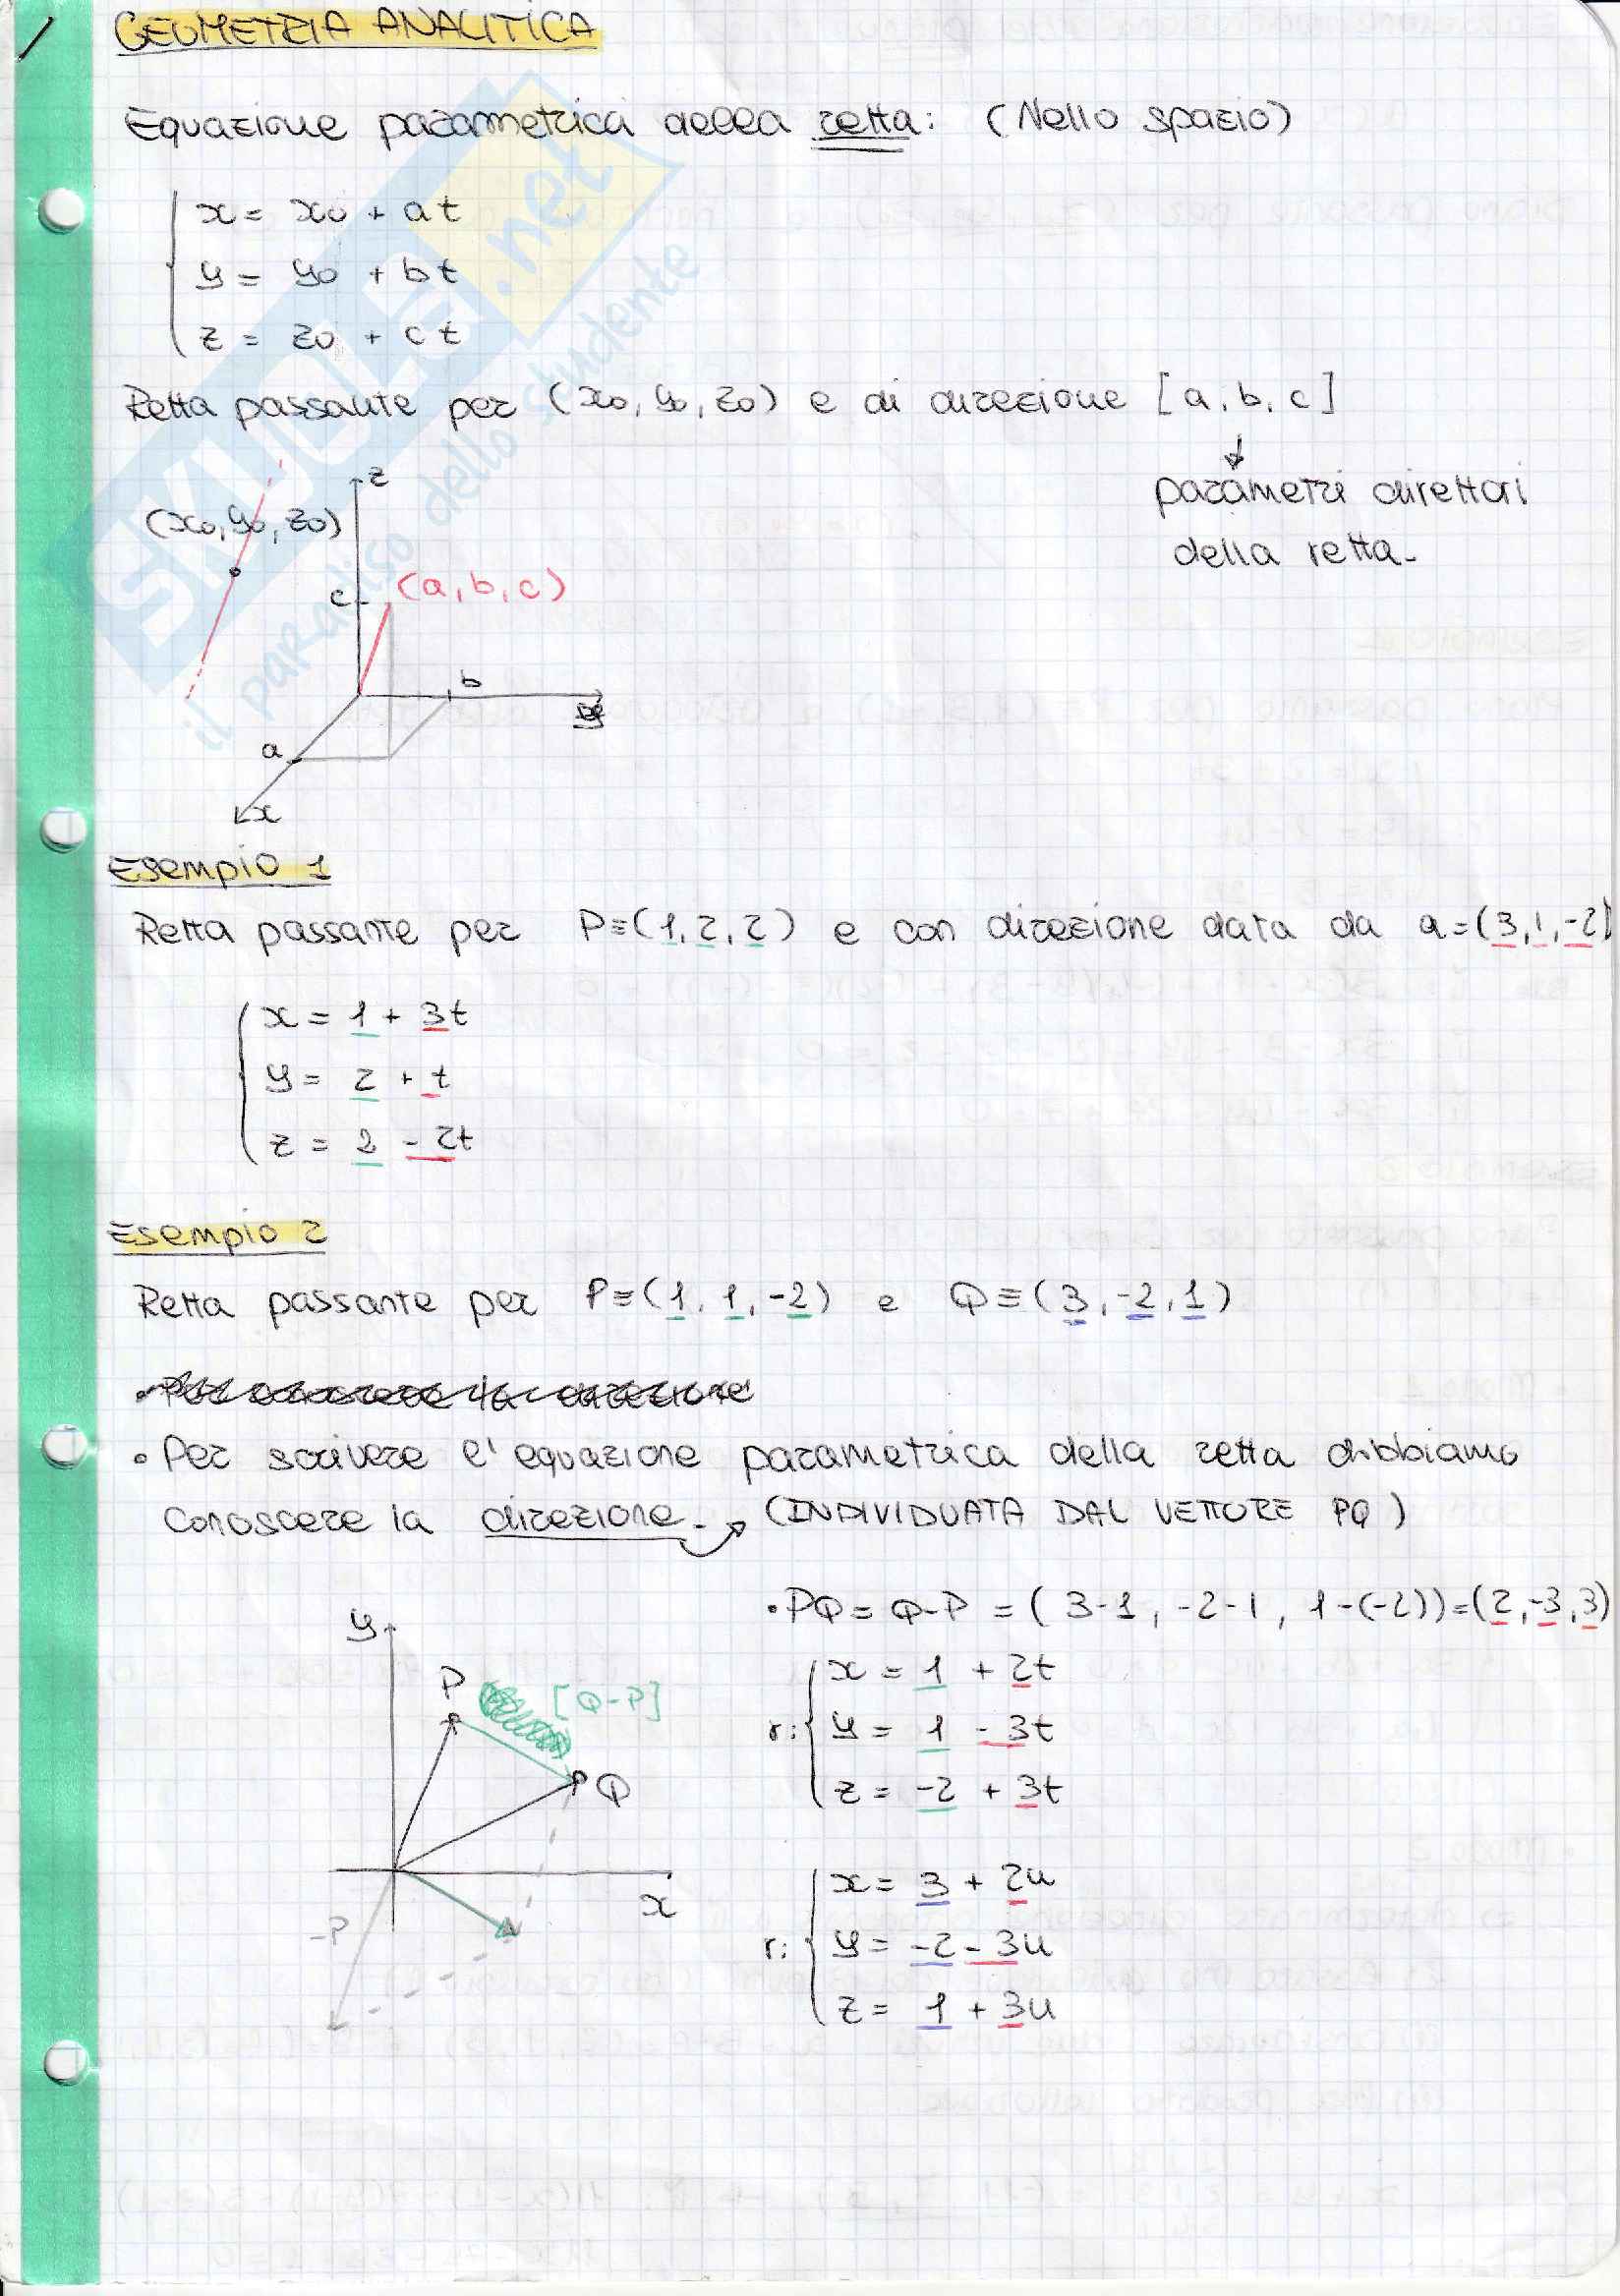 GEOMETRIA ANALITICA
Equazione parametrica della retta: (Nello spazio)
x = x0 + at
y = y0 + bt
z = z0 + ct
Retta passante per (x0, y0, z0) e di direzione [a, b, c]
parametri direttori
della retta.
z
(x0, y0, z0)
c
(a, b, c)
b
y
a
x
Esempio 1
Retta passante per P≡(1, 2, 2) e con direzione data da a=(3, 1, -2)
x = 1 + 3t
y = 2 + t
z = 2 - 2t
Esempio 2
Retta passante per P≡(1, 1, -2) e Q≡(3, -2, 1)
• Per scrivere l'equazione parametrica della retta dibbiamo
conoscere la direzione. (INDIVIDUATA DAL VETTORE PQ)
• PQ = Q-P = (3-1, -2-1, 1-(-2)) = (2, -3, 3)
y
P
[Q-P]
Q
x
-P
r:
x = 1 + 2t
y = 1 - 3t
z = -2 + 3t
r:
x = 3 + 2u
y = -2 - 3u
z = 1 + 3u
SKUOLA.net
il paradiso dello studente